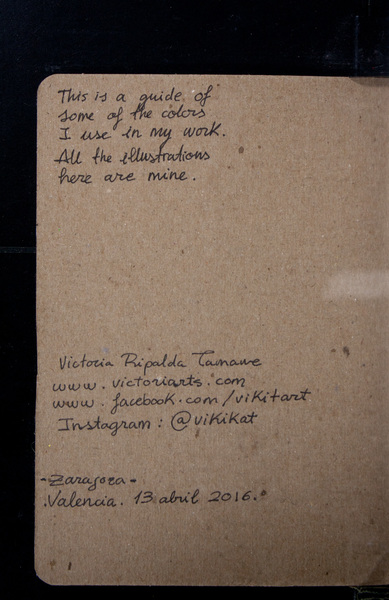 This is a guide of
some of the colors
I use in my work.
All the illustrations
here are mine.
Victoria Ripalda Tamawe
www.victoriarts.com
www.facebook.com/vikitart
Instagram: @vikikat
-Zaragoza-
.Valencia. 13 abril 2016.